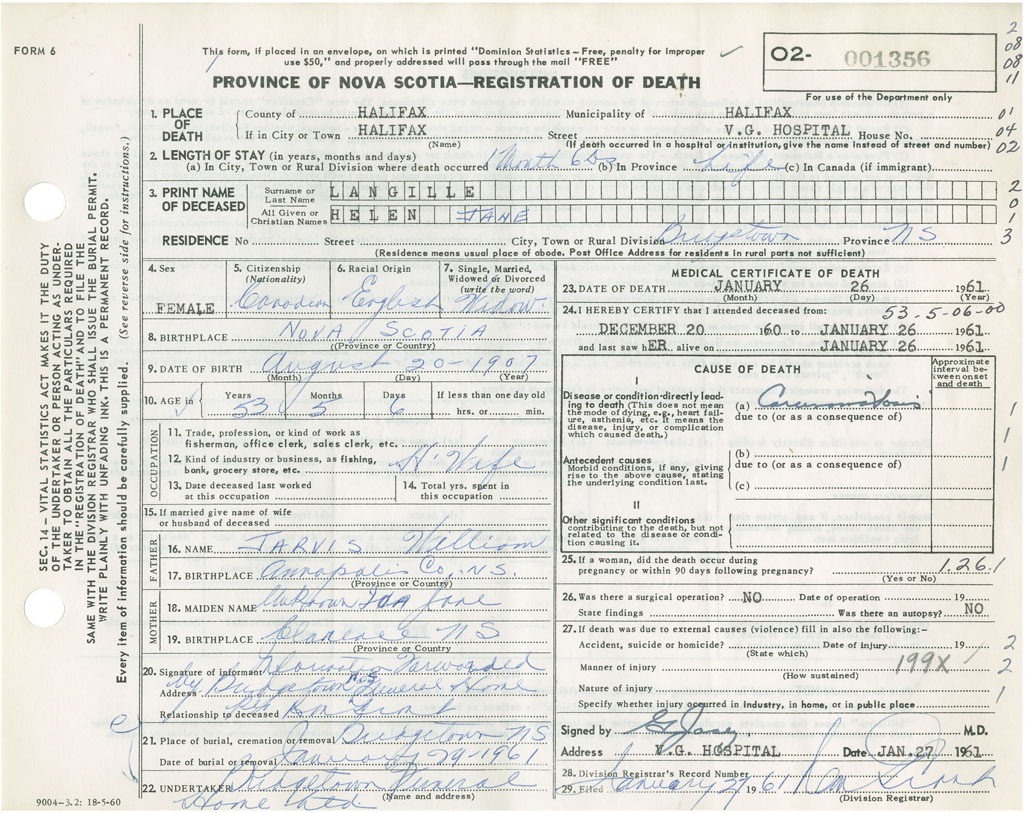 FORM 6
This form, if placed in an envelope, on which is printed "Dominion Statistics – Free, penalty for improper
use $50," and properly addressed will pass through the mail "FREE"
O2- 001356
For use of the Department only
PROVINCE OF NOVA SCOTIA—REGISTRATION OF DEATH
2
08
08
11
1. PLACE OF DEATH
County of HALIFAX Municipality of HALIFAX 01
If in City or Town HALIFAX Street V.G. HOSPITAL House No. 04
(Name) (If death occurred in a hospital or institution, give the name instead of street and number) 02
2. LENGTH OF STAY (in years, months and days)
(a) In City, Town or Rural Division where death occurred 1 Month 6 Ds (b) In Province Life (c) In Canada (if immigrant)
3. PRINT NAME OF DECEASED
Surname or Last Name LANGILLE 2
0
All Given or Christian Names HELEN JANE 1
RESIDENCE No Street City, Town or Rural Division Bridgetown Province NS 3
(Residence means usual place of abode. Post Office Address for residents in rural parts not sufficient)
4. Sex FEMALE
5. Citizenship (Nationality) Canadian
6. Racial Origin English
7. Single, Married, Widowed or Divorced (write the word) Widow.
8. BIRTHPLACE NOVA SCOTIA
(Province or Country)
9. DATE OF BIRTH August 20-1907
(Month) (Day) (Year)
10. AGE in Years 53 Months 5 Days 6 If less than one day old
hrs. or min.
OCCUPATION
11. Trade, profession, or kind of work as
fisherman, office clerk, sales clerk, etc.
12. Kind of industry or business, as fishing,
bank, grocery store, etc. H. Wife
13. Date deceased last worked
at this occupation
14. Total yrs. spent in
this occupation
15. If married give name of wife
or husband of deceased
FATHER
16. NAME JARVIS William
17. BIRTHPLACE Annapolis Co, N.S.
(Province or Country)
MOTHER
18. MAIDEN NAME Unknown Ida Jane
19. BIRTHPLACE Clarence NS
(Province or Country)
20. Signature of informant Information Forwarded
Address by Bridgetown N.S. Funeral Home
Relationship to deceased
21. Place of burial, cremation or removal Bridgetown NS
Date of burial or removal January 29-1961
22. UNDERTAKER Bridgetown Funeral
Home Ltd. (Name and address)
9004–3.2: 18-5-60
MEDICAL CERTIFICATE OF DEATH
23. DATE OF DEATH JANUARY 26 1961
(Month) (Day) (Year)
24. I HEREBY CERTIFY that I attended deceased from: 53-5-06-00
DECEMBER 20 1960 to JANUARY 26 1961
and last saw hER alive on JANUARY 26 1961
CAUSE OF DEATH
Approximate interval between onset and death
I
Disease or condition directly leading to death (This does not mean the mode of dying, e.g., heart failure, asthenia, etc. It means the disease, injury, or complication which caused death.)
(a) Carcinomatosis 1
due to (or as a consequence of)
1
Antecedent causes
Morbid conditions, if any, giving rise to the above cause, stating the underlying condition last.
(b) 1
due to (or as a consequence of)
(c)
II
Other significant conditions
contributing to the death, but not related to the disease or condition causing it.
25. If a woman, did the death occur during
pregnancy or within 90 days following pregnancy? 1.26.1
(Yes or No)
26. Was there a surgical operation? NO Date of operation 19
State findings Was there an autopsy? NO
27. If death was due to external causes (violence) fill in also the following:–
Accident, suicide or homicide? Date of injury 19 2
(State which)
Manner of injury 199X 2
(How sustained)
Nature of injury
Specify whether injury occurred in industry, in home, or in public place 1
Signed by M.D.
Address V.G. HOSPITAL Date JAN. 27 1961
28. Division Registrar's Record Number
29. Filed January 27 1961
(Division Registrar)
SEC. 14 – VITAL STATISTICS ACT MAKES IT THE DUTY
OF THE UNDERTAKER OR PERSON ACTING AS UNDER-
TAKER TO OBTAIN ALL THE PARTICULARS REQUIRED
IN THE "REGISTRATION OF DEATH" AND TO FILE THE
SAME WITH THE DIVISION REGISTRAR WHO SHALL ISSUE THE BURIAL PERMIT.
WRITE PLAINLY WITH UNFADING INK. THIS IS A PERMANENT RECORD.
Every item of information should be carefully supplied. (See reverse side for instructions.)